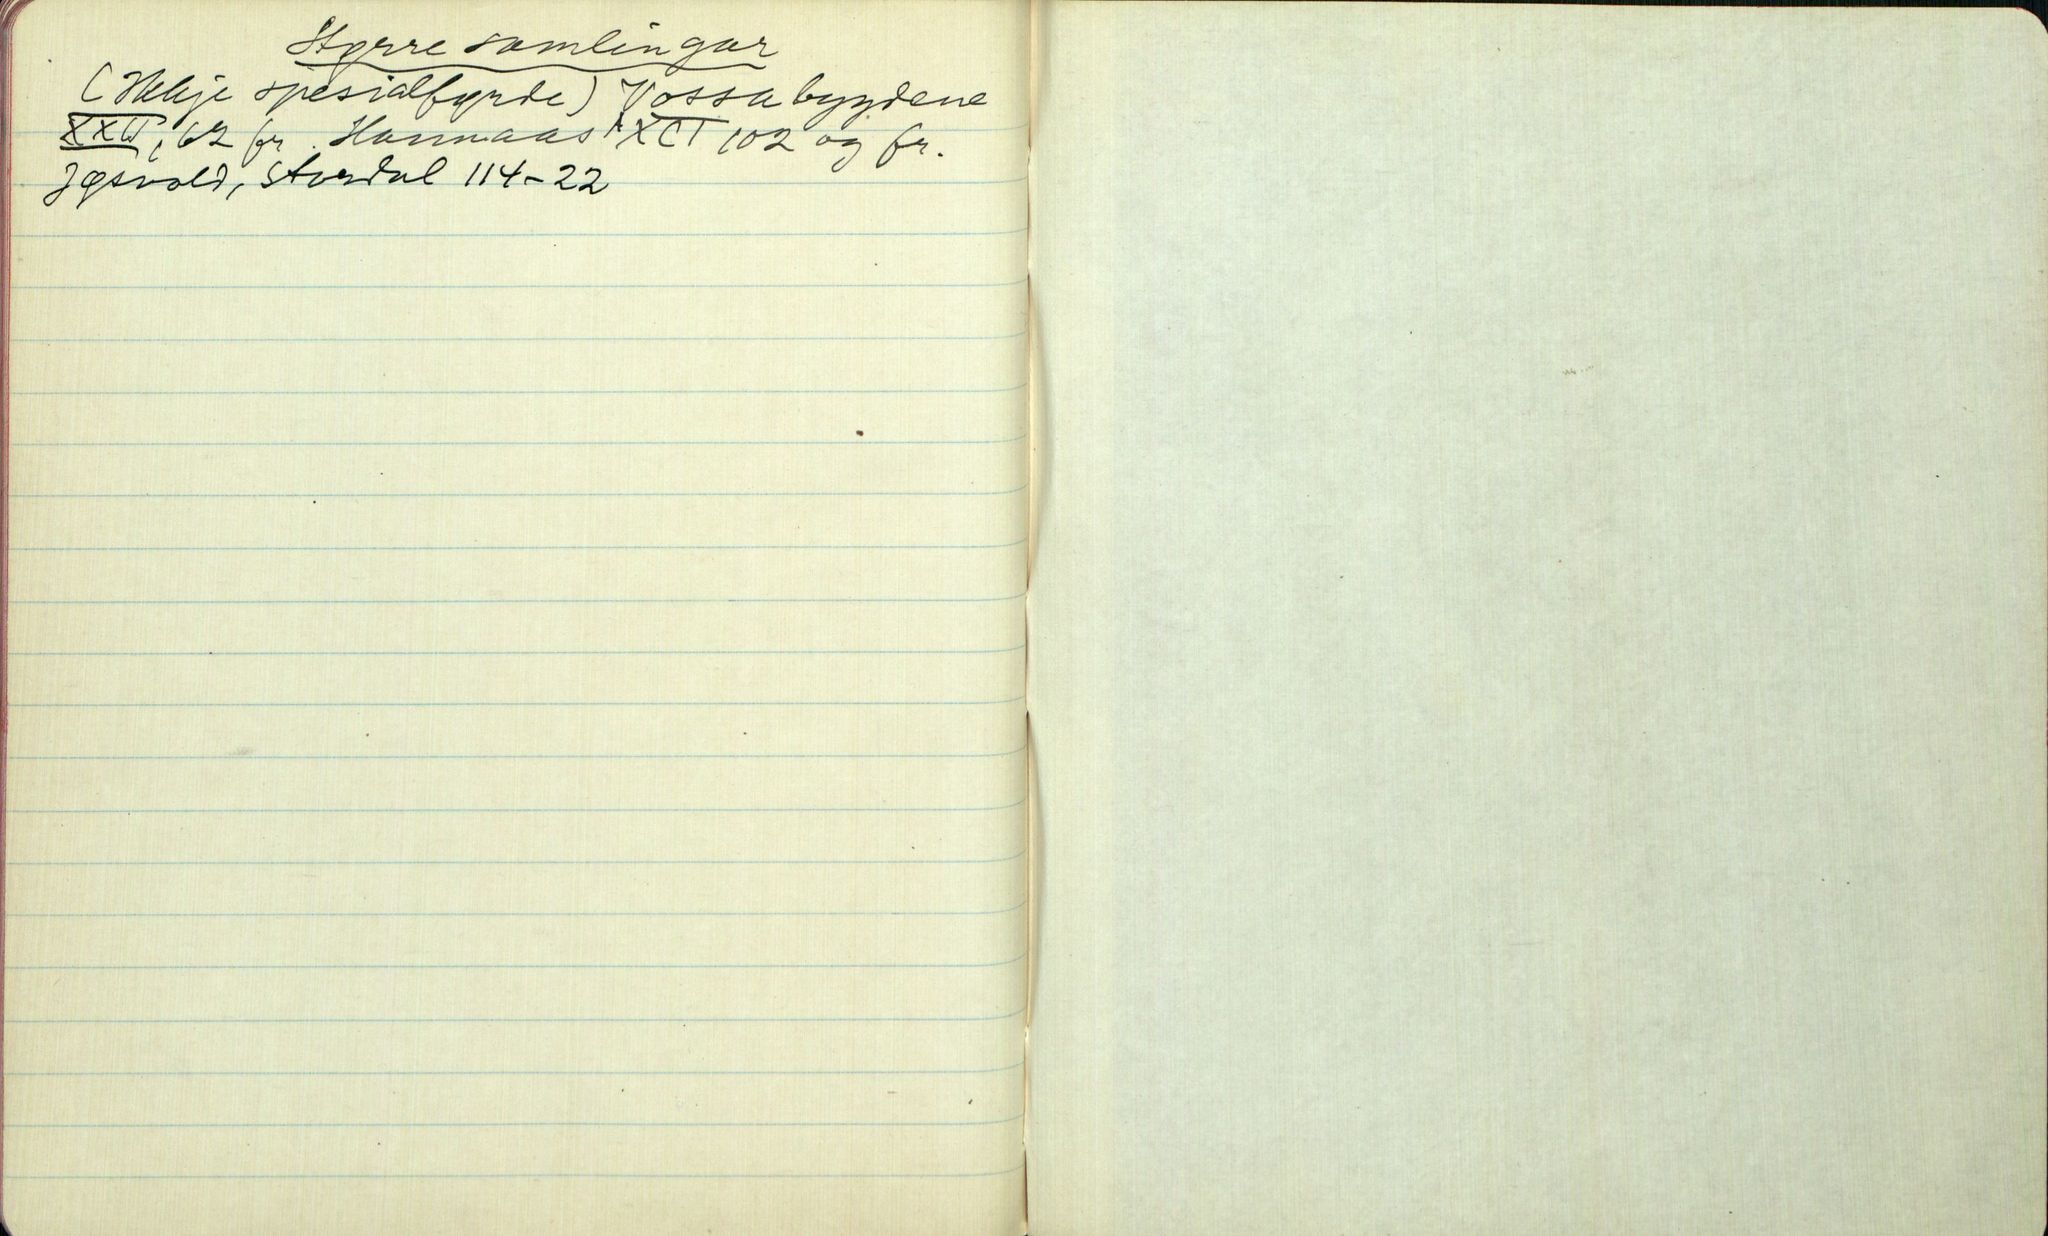 Större samlingar
(Ikkje spesialfyrde) Vossabygdene
XXII, 62 fr. Hannaas XCI 102 og fr.
Jøsvold, Stordal 114-22